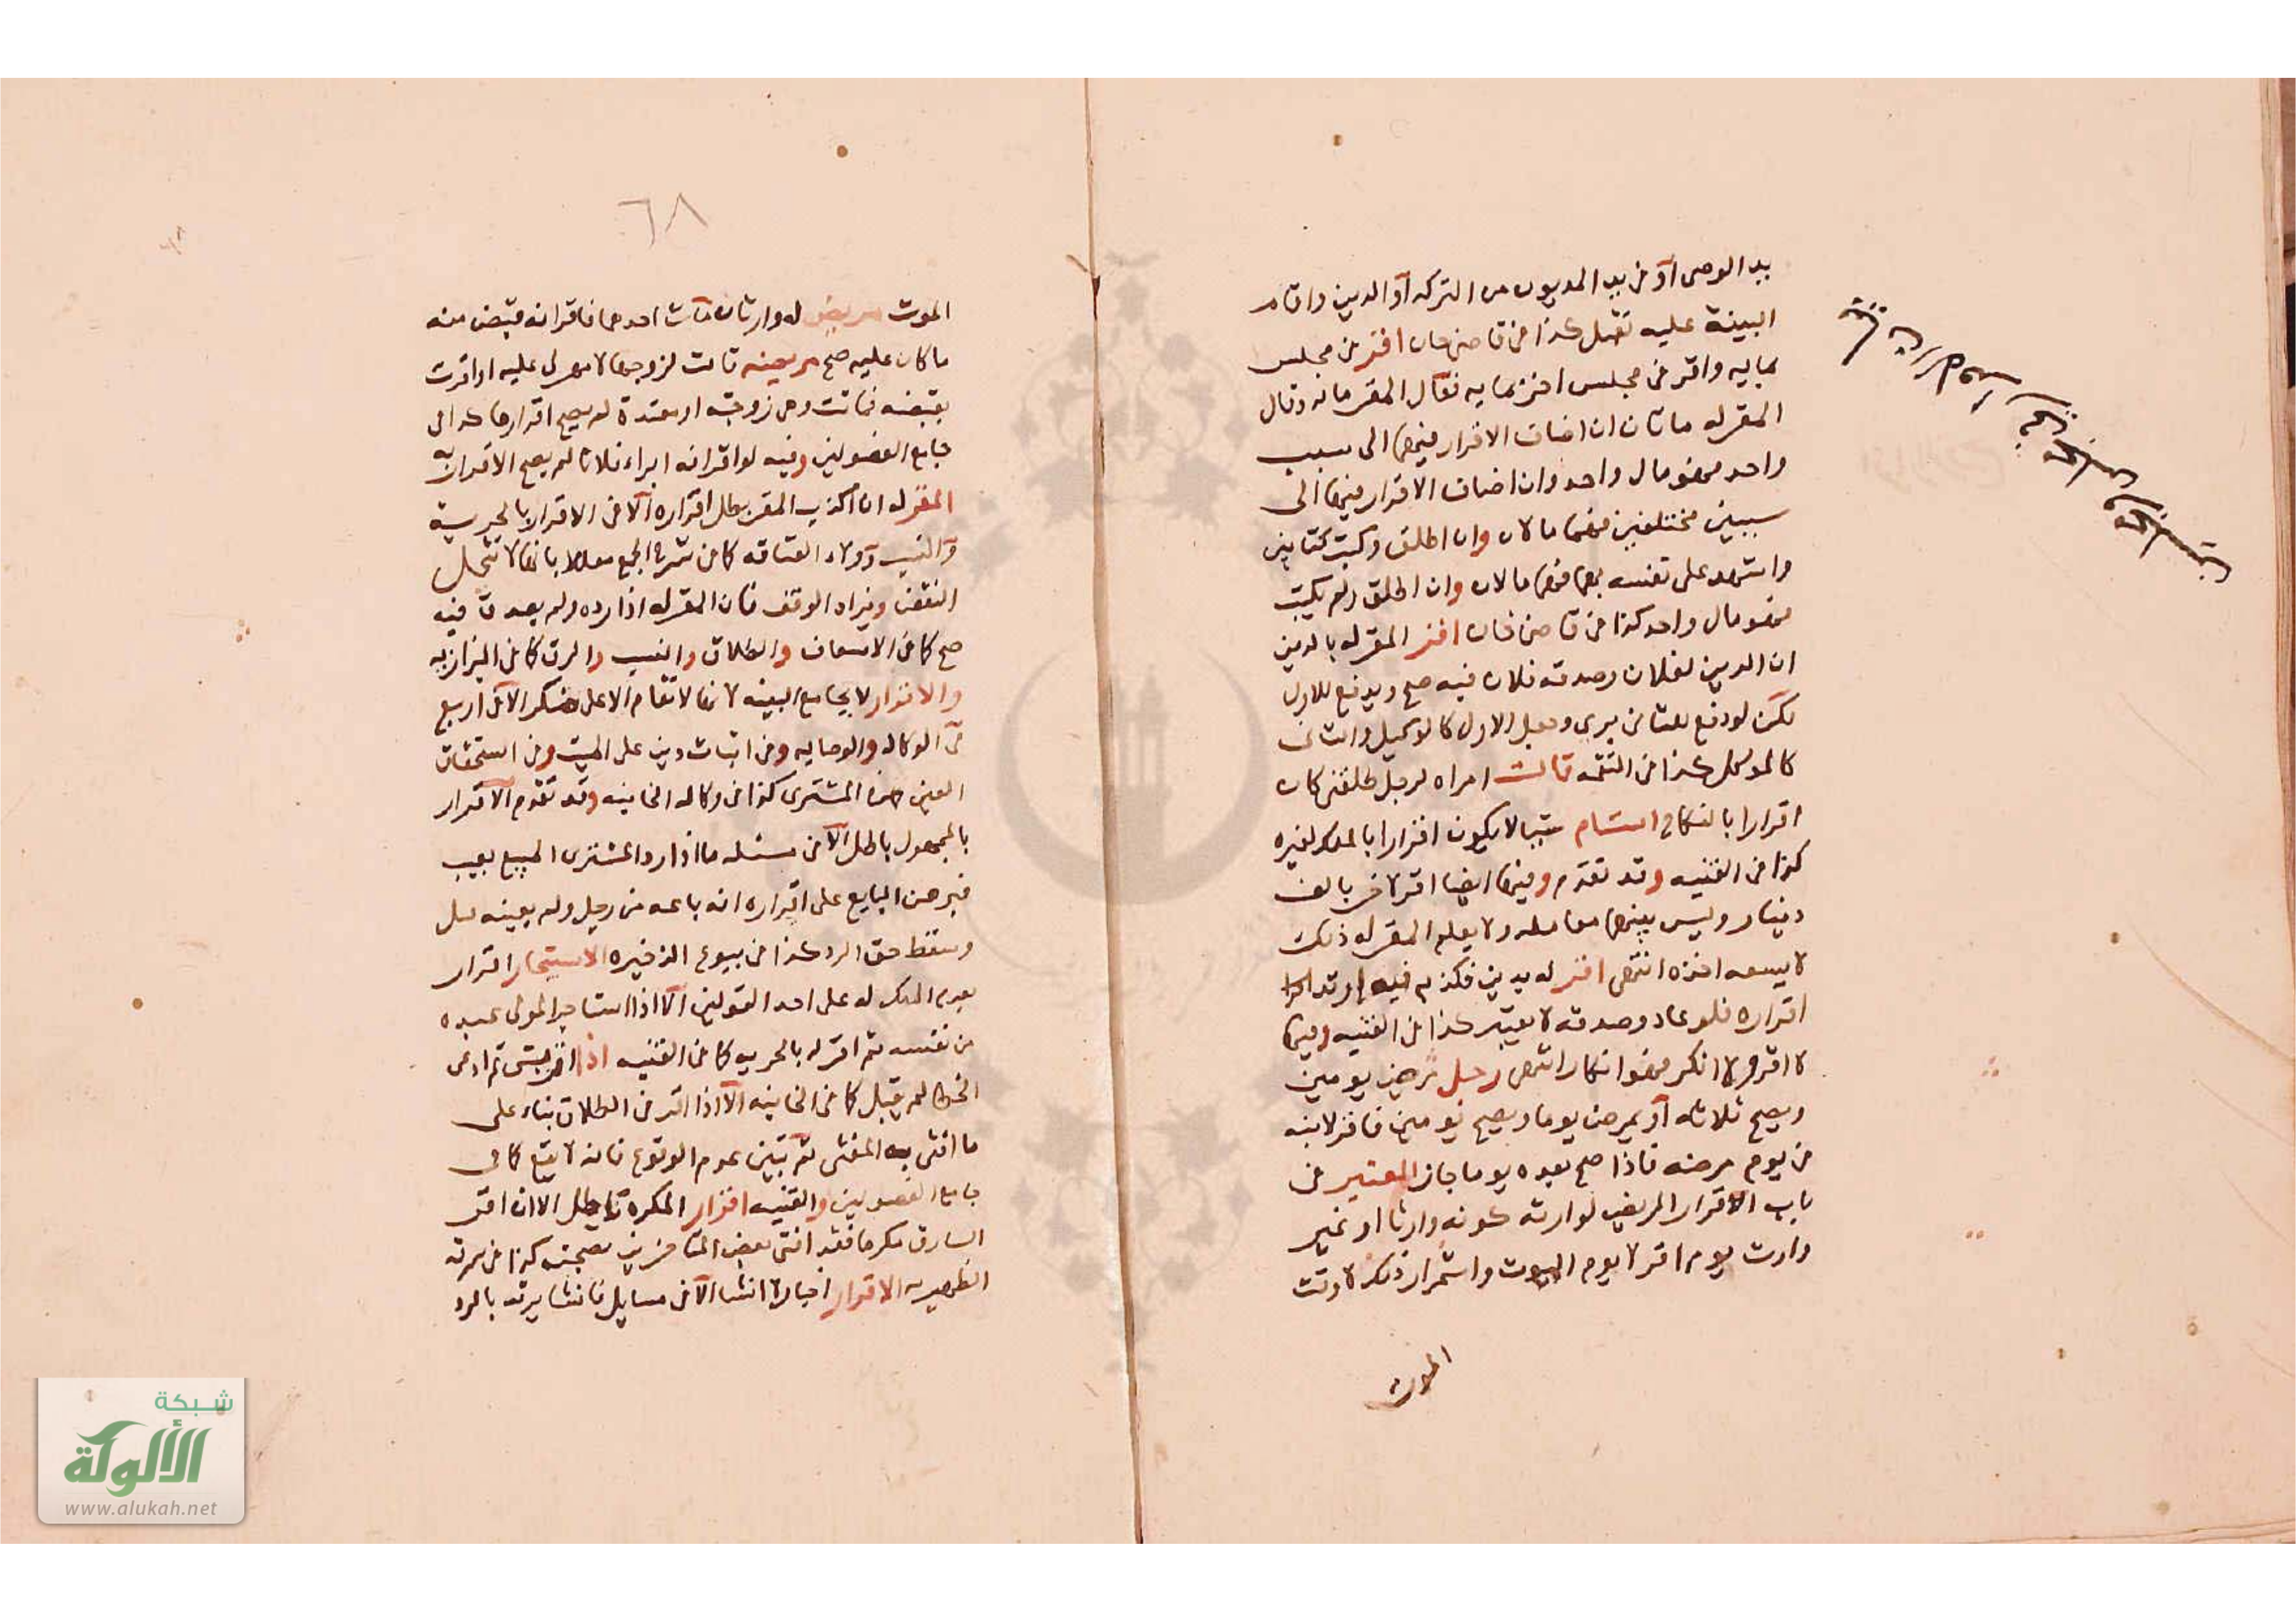 يد الوصى او في يد المديون من التركه او الدين واقام
البينة عليه تقبل كذا في قاضى خان اقر في مجلس
بمايه واقر في مجلس اخر بمايه فقال المقر مايه وقال
المقر له مائتان ان اضاف الاقرار فيهما الى سبب
واحد فهو مال واحد وان اضاف الاقرار فيهما الى
سببين مختلفين فهما مالان وان اطلق وكتب كتابين
واشهد على نفسه بهما فهما مالان وان اطلق ولم يكتب
فهو مال واحد كذا في قاضى خان اقر المقر له بالدين
ان الدين لفلان وصدقه فلان فيه صح ويدفع للاول
لكن لو دفع للثانى برى وجعل الاول كالوكيل والثانى
كالموكل كذا في التتمه قالت امراه لرجل طلقنى كان
اقرارا بالنكاح استام شيا لا يكون اقرارا بالملك لغيره
كذا في القنيه وقد تقدم وفيها ايضا اقر لاخر بالف
دينار وليس بينهما معامله ولا يعلم المقر له ذلك
لا يسعه اخذه انتهى اقر له بدين فكذبه فيه ارتد
اقراره فلو عاد وصدقه لا يعتبر كذا في القنيه وفيها
لا اقر ولا انكر فهو انكار انتهى رجل مرض يومين
ويصح ثلاثه او يمرض يوما ويصح يومين فاقر لابنه
في يوم مرضه فاذا صح بعده يوما جاز المعتبر في
باب الاقرار المريض لوارثه كونه وارثا او غير
وارث يوم اقر لا يوم الموت واستمرار ذلك لا وقت
الموت
٦٨
الموت مريض له وارثان مات احدهما فاقر انه قبض منه
ما كان عليه صح مريضه قالت لزوجها لا مهر لى عليه او اقرت
بقبضه فماتت وهى زوجته او معتدة لم يصح اقرارها كذا فى
جامع الفصولين وفيه لو اقر انه ابراء فلانا لم يصح الاقرار به
المقر له اذا كذب المقر بطل اقراره الا في الاقرار بالحرية
والنسب وولاء العتاقه كما في شرح المجمع معللا بانها لا تحتمل
النقض ويزاد الوقف فان المقر له اذا رده ولم يصدق فيه
صح كما في الاسعاف والطلاق والنسب والرق كما في البزازيه
والاقرار لا يجامع البينه لانها لا تقام الا على منكر الا في اربع
في الوكاله والوصايه وفي اثبات دين على الميت وفي استحقاق
العين من المشترى كذا في وكاله الخانيه وقد تقدم الاقرار
بالمجهول باطل الا في مسئله ما اذا رد المشترى المبيع بعيب
فبرهن البايع على اقراره انه باعه من رجل ولم يعينه قبل
وسقط حق الرد كذا في بيوع الذخيره الاستيجار اقرار
بعدم الملك له على احد القولين الا اذا استاجر المولى عبده
من نفسه ثم اقر له بالحريه كما في القنيه اذا اقر بشى ثم ادعى
الخطا لم يقبل كما في الخانيه الا اذا اقر في الطلاق بناء على
ما افتى به المفتى ثم تبين عدم الوقوع فانه لا يقع كما فى
جامع الفصولين والقنيه اقرار المكره باطل الا ان اقر
السارق مكرها فقد افتى بعض المتاخرين بصحته كذا في سرقه
الظهيريه الاقرار اخبار لا انشا الا في مسايل فانشا يرتد بالرد
شبكة
الألوكة
www.alukah.net